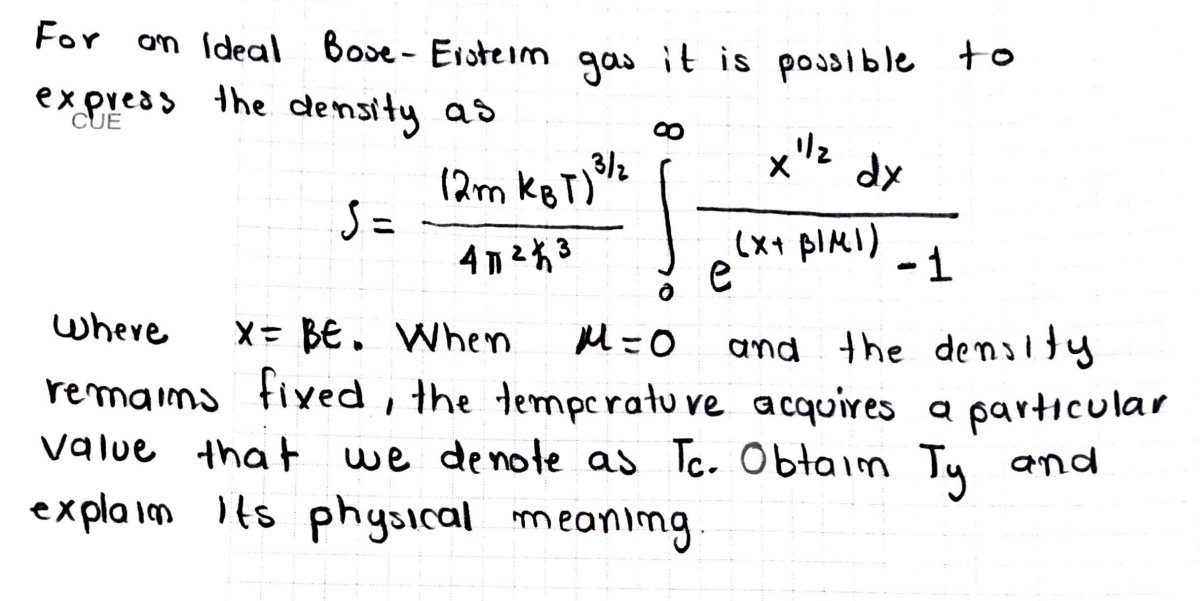 For an Ideal Bose-Eisteim gas it is possible to
express the density as
CUE
ρ = (2m k_B T)^{3/2} / 4π²ħ³ ∫_0^∞ x^{1/2} dx / e^{(x + β|μ|)} - 1
where x = βE. When μ = 0 and the density
remains fixed, the temperature acquires a particular
value that we denote as Tc. Obtain Ty and
explain its physical meaning.